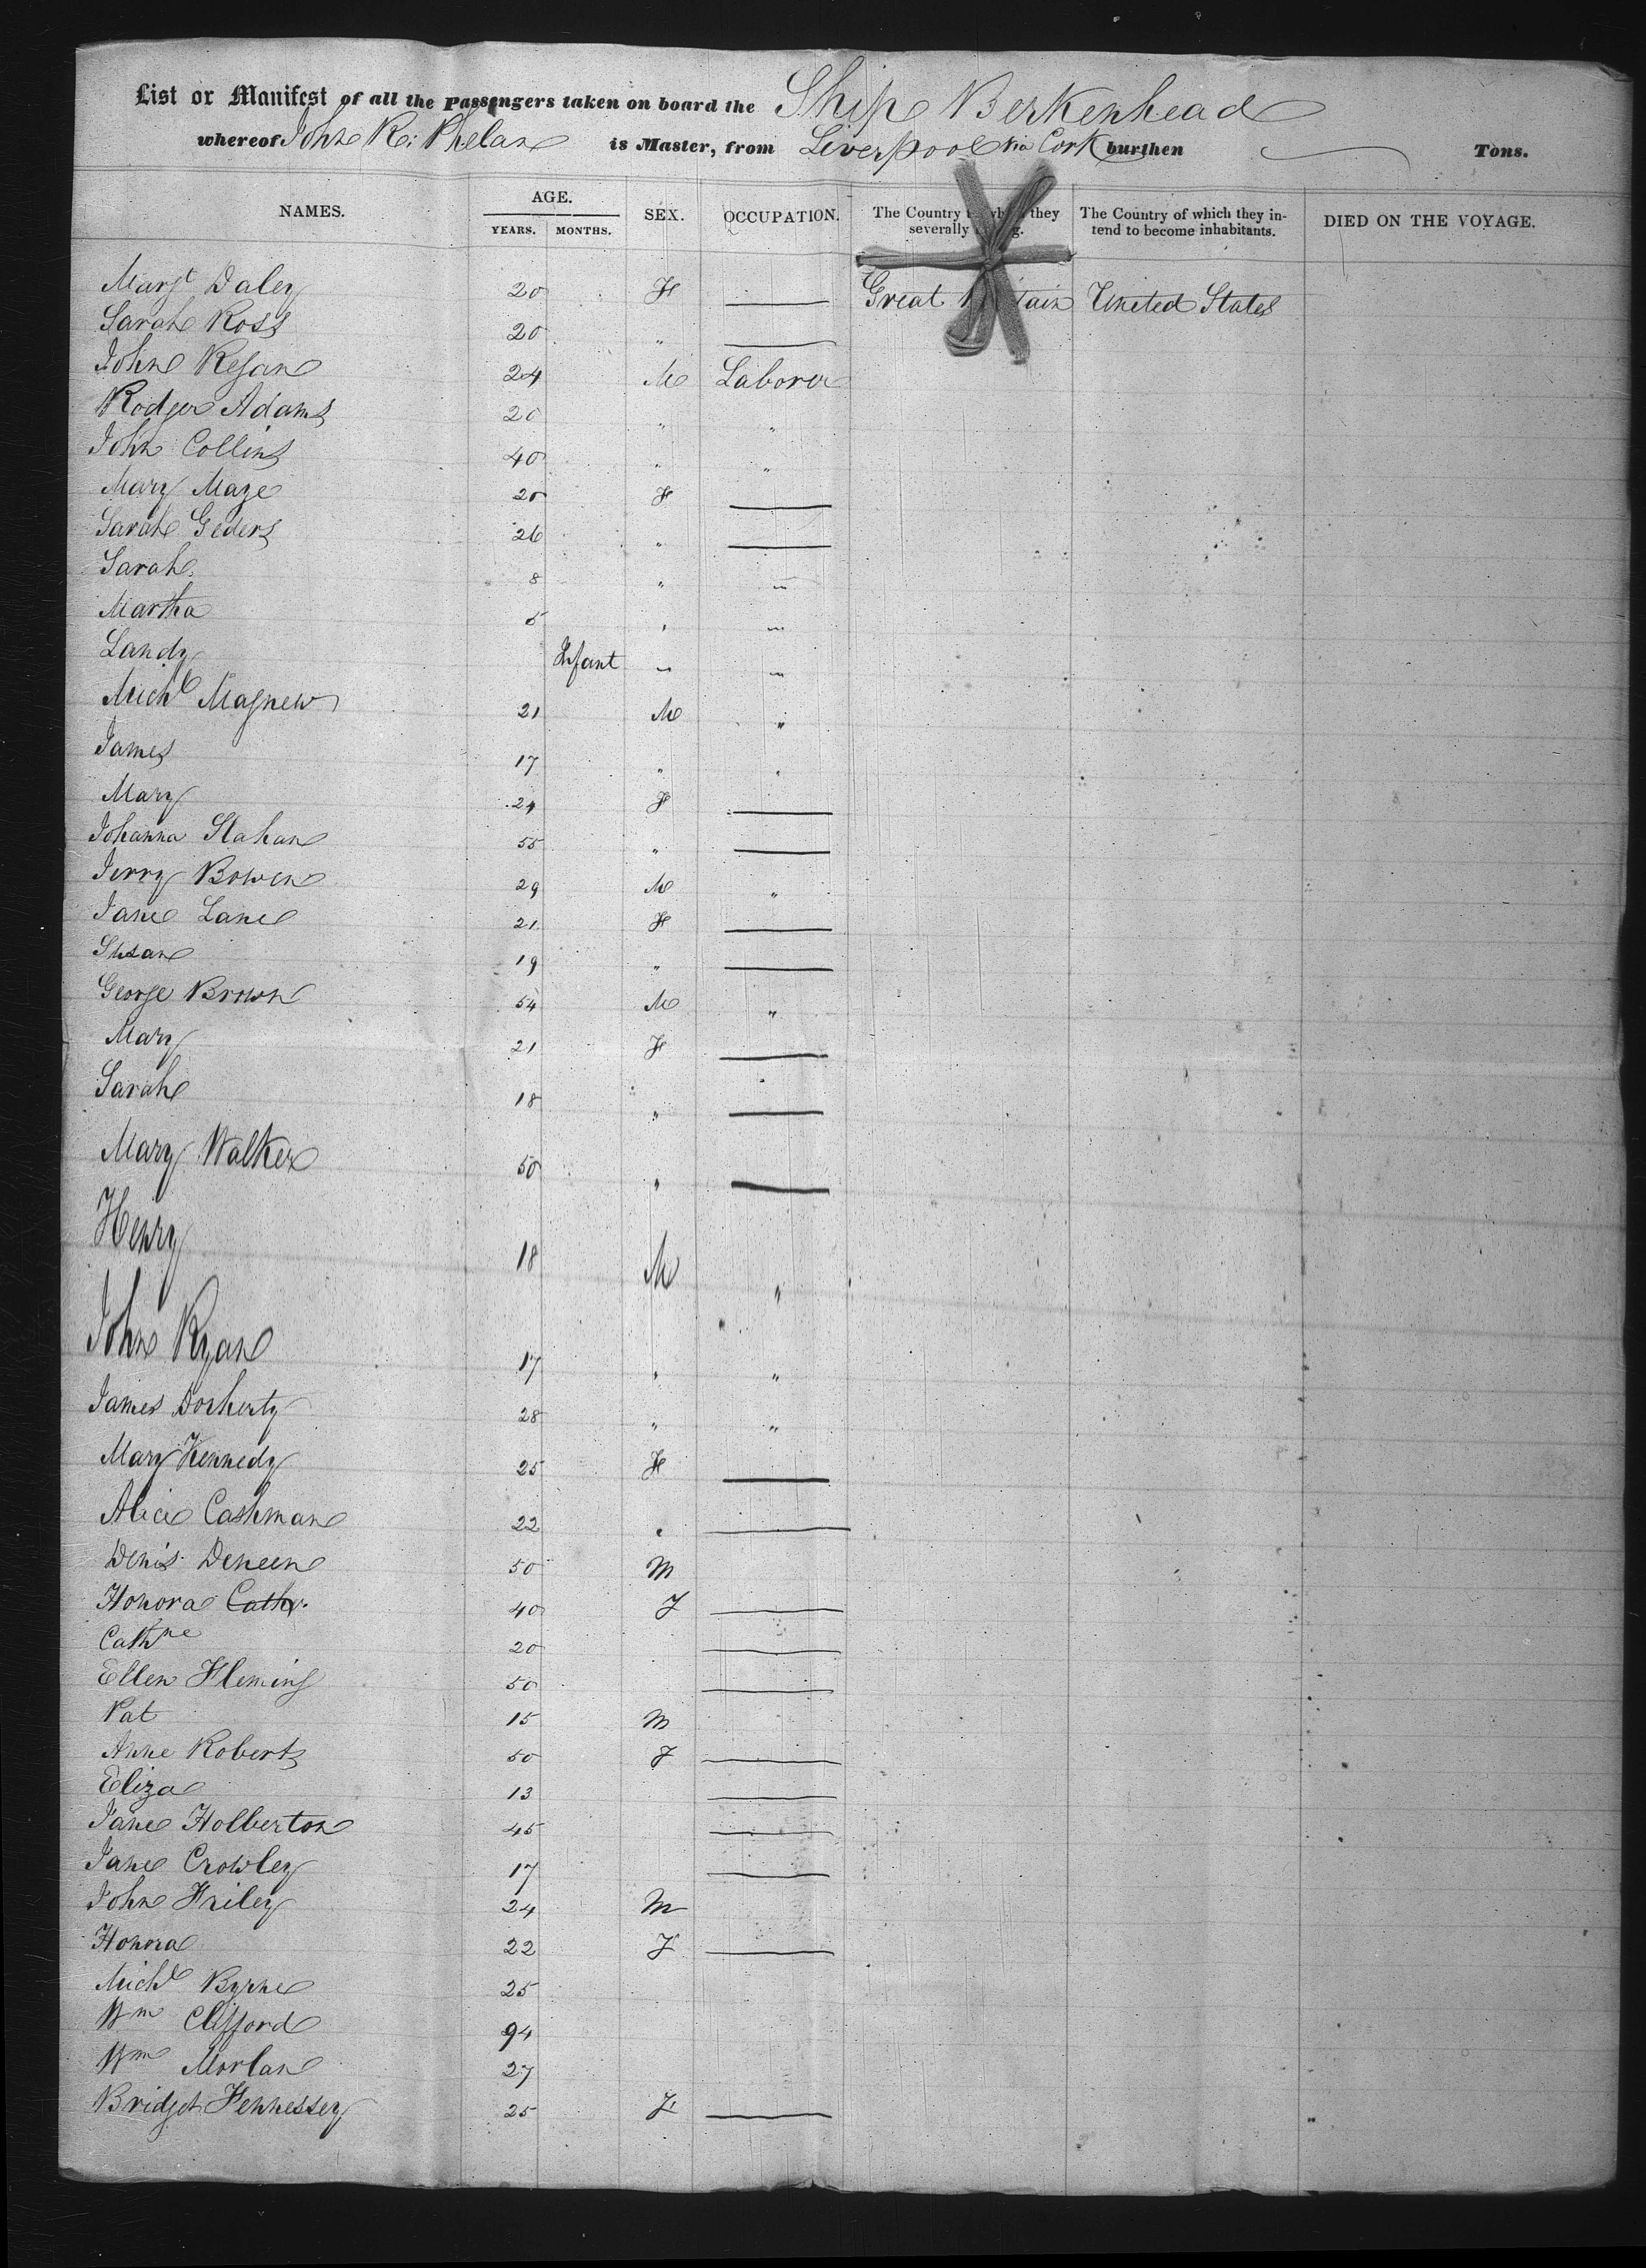 List or Manifest of all the Passengers taken on board the Ship Berkenhead
whereof John R. Phelan is Master, from Liverpool via Cork burthen Tons.
NAMES. AGE. YEARS. MONTHS. SEX. OCCUPATION. The Country they severally The Country of which they intend to become inhabitants. DIED ON THE VOYAGE.
Margt Daley 20 F — Great Britain United States
Sarah Ross 20 " —
John Regan 24 M Laborer
Rodger Adams 20 " "
John Collins 40 " "
Mary Maze 20 F —
Sarah Geders 26 " —
Sarah 8 " "
Martha 5 " "
Landy Infant " "
Michl Magnew 21 M "
James 17 " "
Mary 24 F —
Johanna Slahan 55 " —
Jerry Bowen 29 M "
Jane Lane 21 F —
Susan 19 " —
George Brown 54 M "
Mary 21 F —
Sarah 18 " —
Mary Walker 50 " —
Henry 18 M "
John Ryan 17 " "
James Dorherty 28 " "
Mary Kennedy 25 F —
Alice Cashman 22 " —
Denis Deneen 50 M
Honora Cathr. 40 F —
Cathne 20 —
Ellen Fleming 50 —
Pat 15 M
Anne Roberts 50 F —
Eliza 13 —
Jane Holberton 45 —
Jane Crowley 17 —
John Friley 24 M
Honora 22 F —
Michl Byrne 25
Wm Clifford 94
Wm Morlan 27
Bridget Hennessey 25 F —